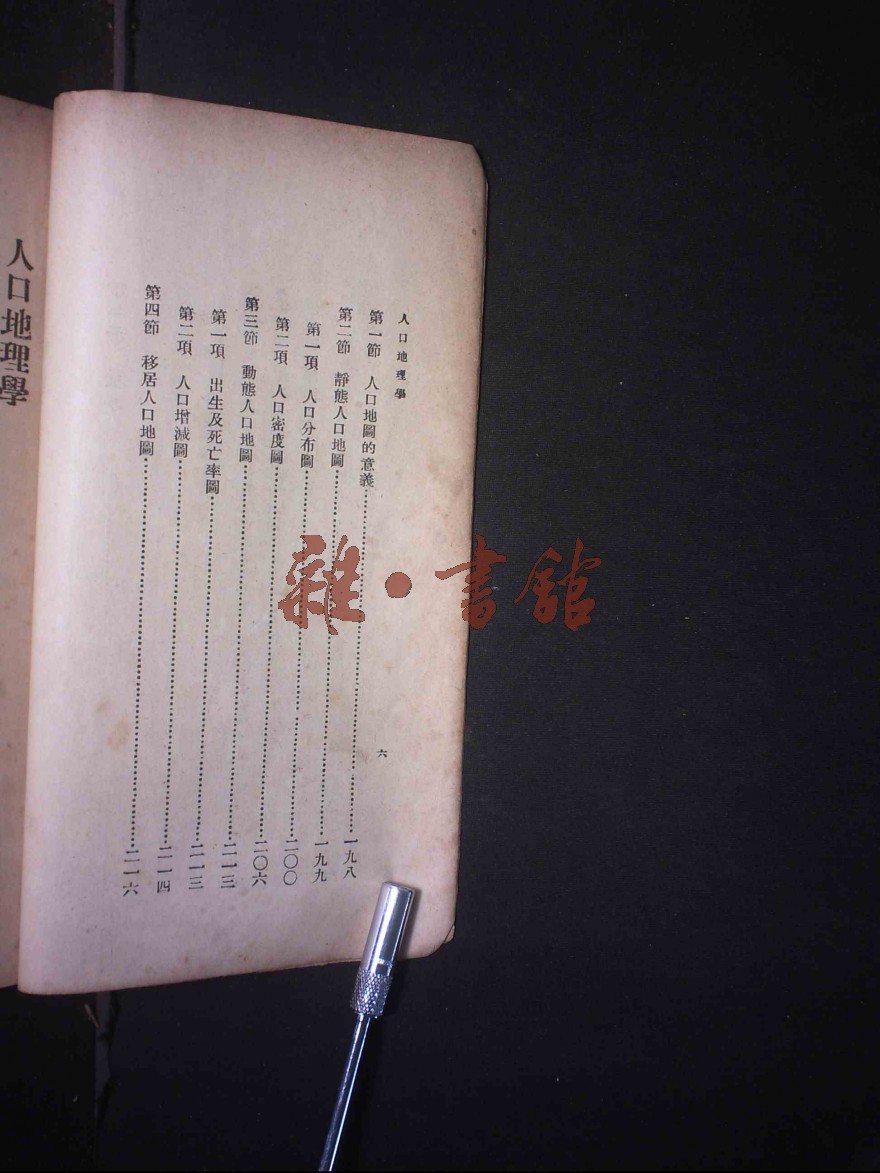 人口地理學
六
第一節　人口地圖的意義⋯⋯一九八
第二節　靜態人口地圖⋯⋯一九九
第一項　人口分布圖⋯⋯二〇〇
第二項　人口密度圖⋯⋯二〇六
第三節　動態人口地圖⋯⋯二一三
第一項　出生及死亡率圖⋯⋯二一三
第二項　人口增減圖⋯⋯二一四
第四節　移居人口地圖⋯⋯二一六
人口地理學
雜·書館